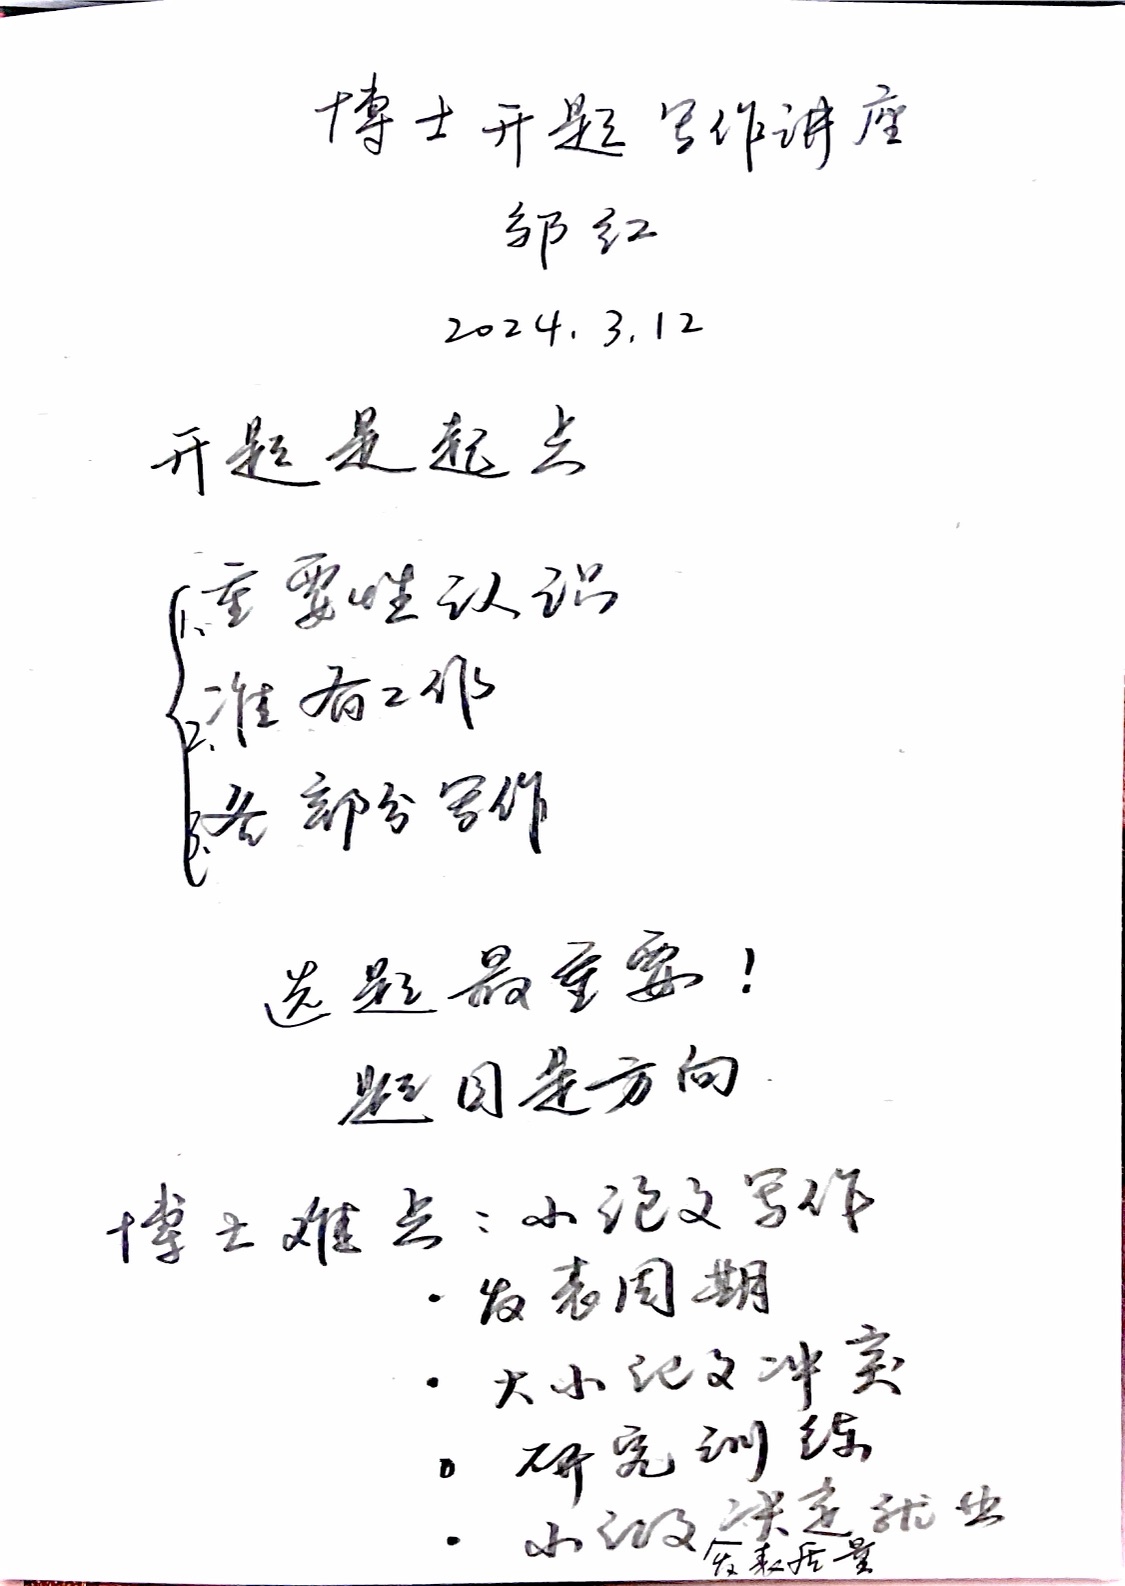 博士开题写作讲座
邹红
2024.3.12
开题是起点
1、重要性认识
2、准备工作
3、各部分写作
选题最重要！
题目是方向
博士难点：小论文写作
·发表周期
·大小论文冲突
·研究训练
·小论文决定就业
发表质量